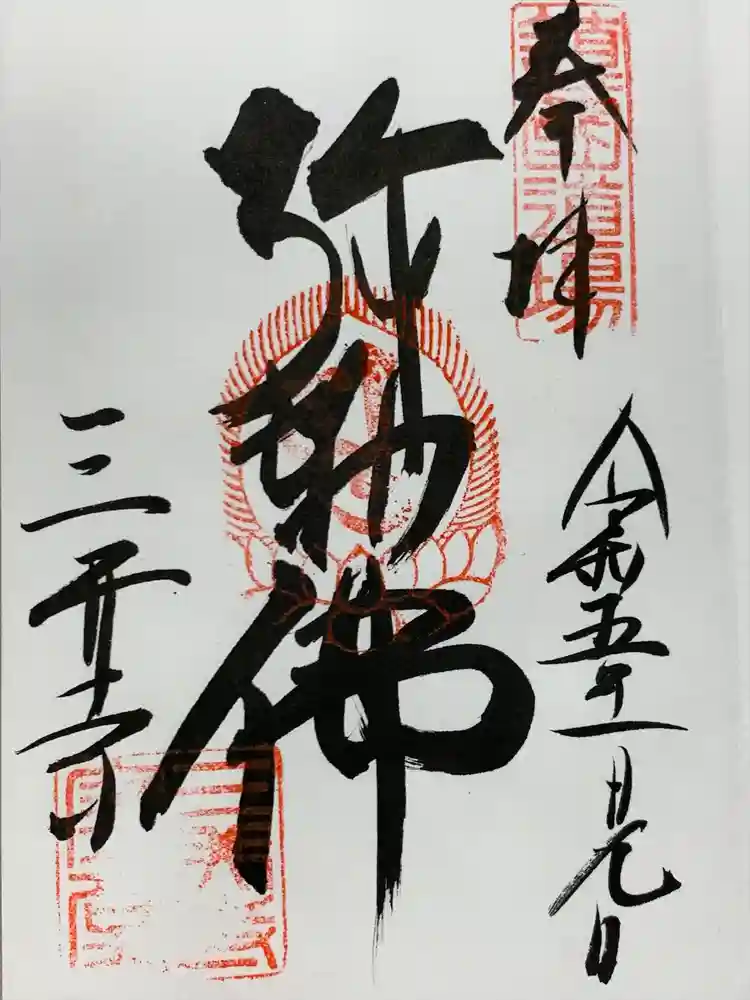 奉拝
令和五年一月元日
弥勒佛
三井寺
道場